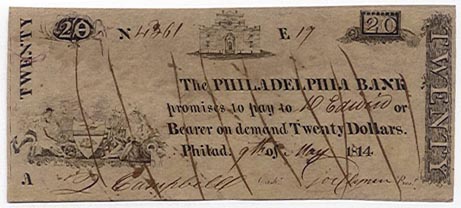 TWENTY
20
N 4361
E 17
20
TWENTY
The PHILADELPHIA BANK
promises to pay to D Edwin or
Bearer on demand Twenty Dollars.
Philad. 9th of May 1814
A
Campbell
Cash.
Pres.